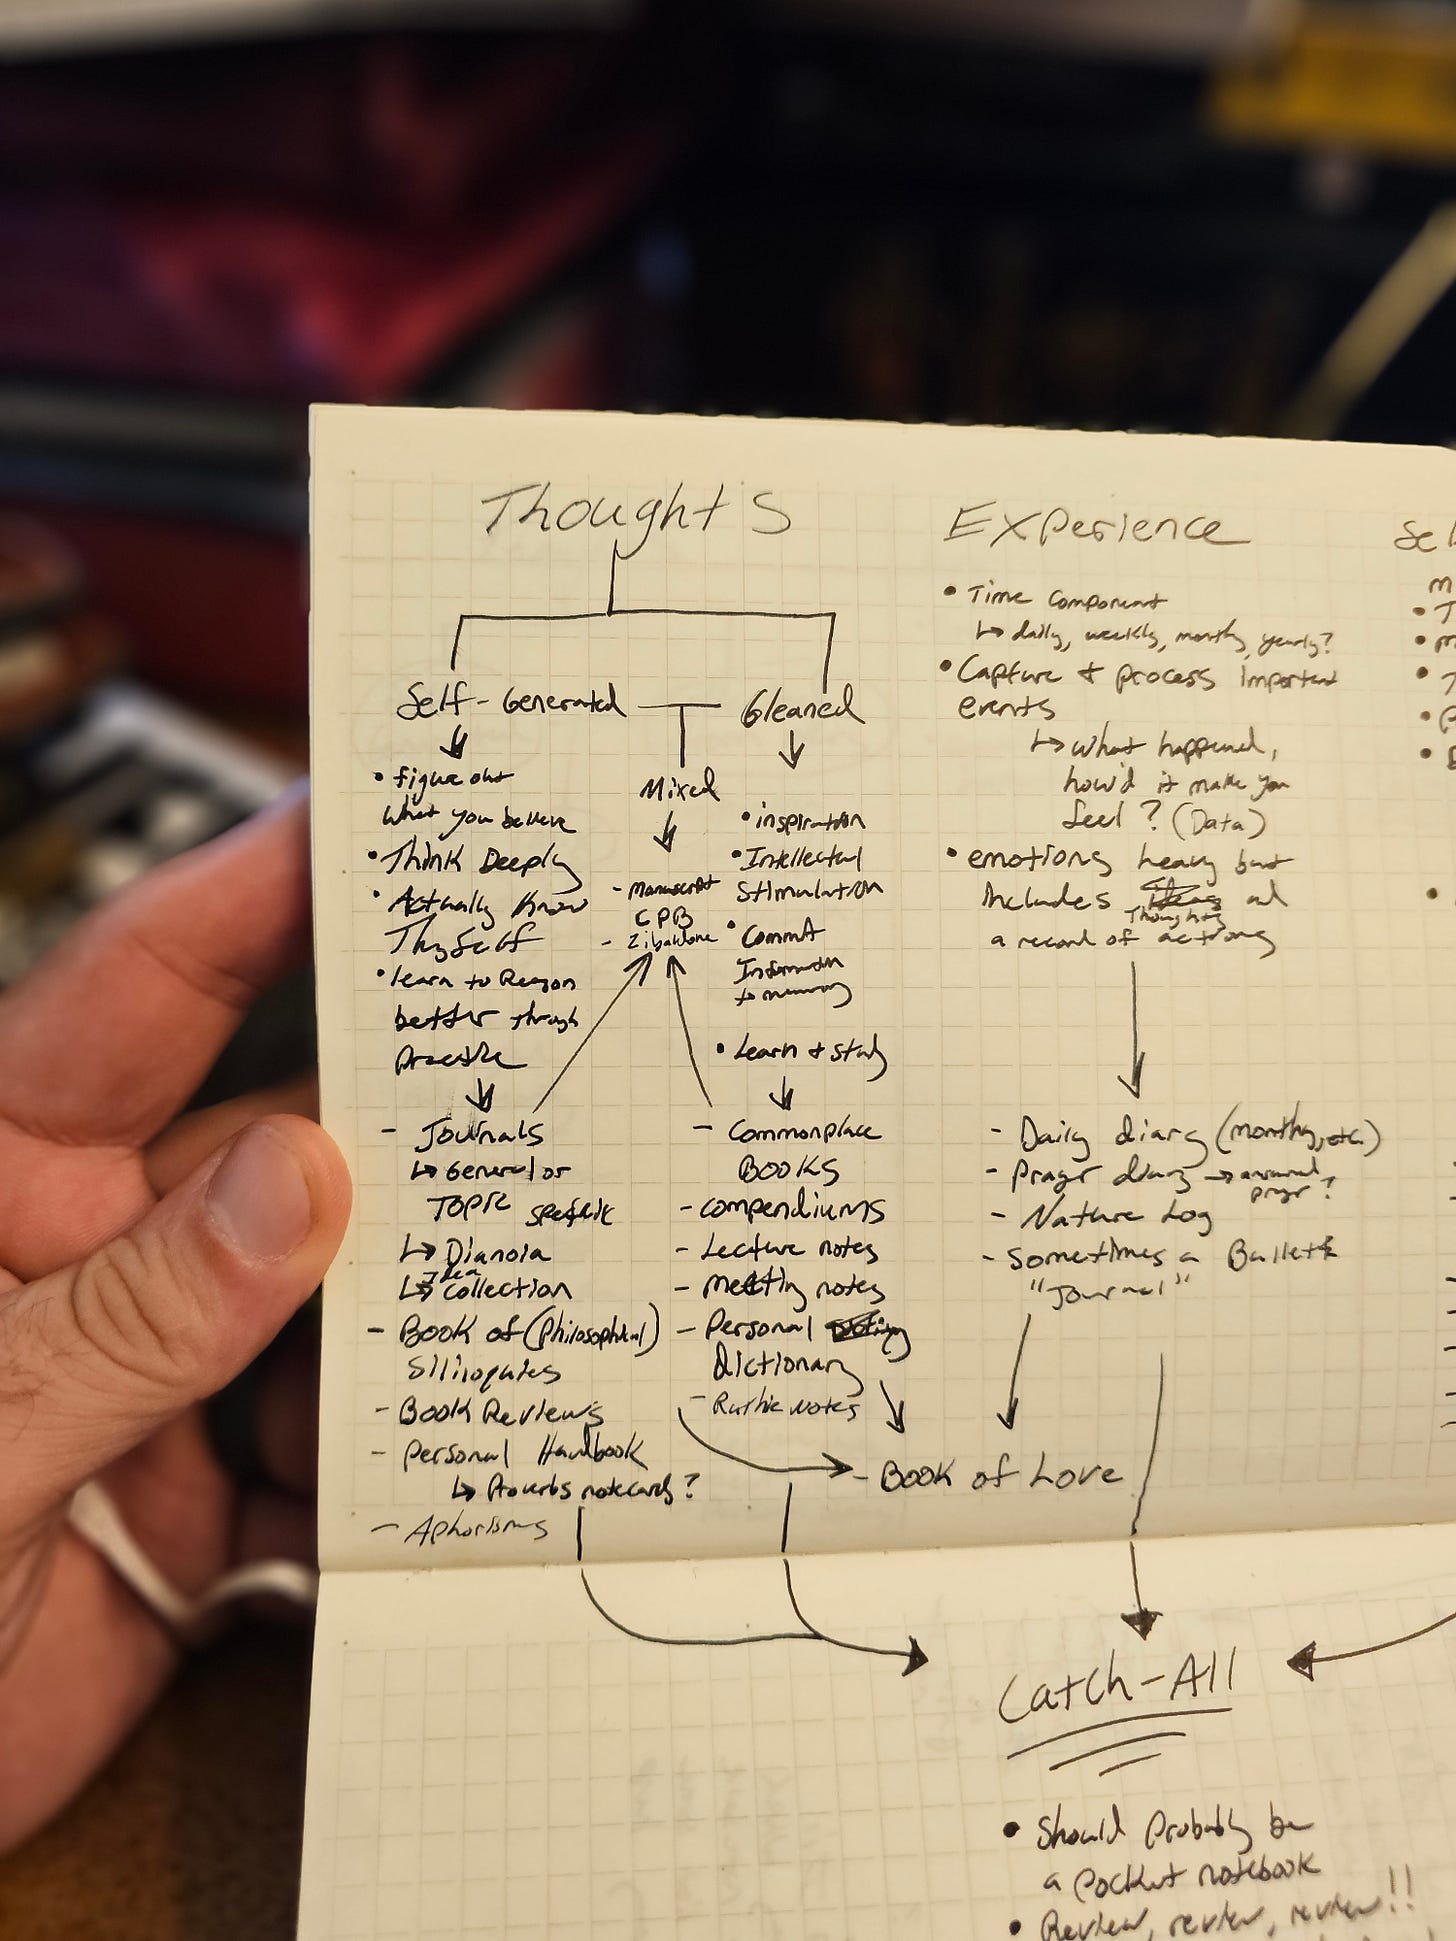 Thoughts
Self-Generated
• figure out
what you believe
• Think Deeply
• Actually Know
Thyself
• learn to Reason
better through
Practice
- Journals
↳ General or
Topic specific
↳ Dianoia
↳ Idea collection
- Book of (Philosophical)
Sililoquies
- Book Reviews
- Personal Handbook
↳ Proverbs notecards?
- Aphorisms
Mixed
- Manuscript
CPB
- Zibaldone
Gleaned
• inspiration
• Intellectual
Stimulation
• Commit
Information
to memory
• Learn + Study
- Commonplace
Books
- Compendiums
- Lecture notes
- Meeting notes
- Personal
dictionary
- Notes
- Book of Love
Experience
• Time Component
↳ daily, weekly, monthly, yearly?
• Capture + process Important
events
↳ what happened,
how'd it make you
feel? (Data)
• emotions heavy but
includes Thoughts and
a record of actions
- Daily diary (monthly, etc.)
- Prayer diary → answered
prayer?
- Nature Log
- Sometimes a Bullet
"Journal"
Catch-All
• Should Probably be
a pocket notebook
• Review, review, review!!